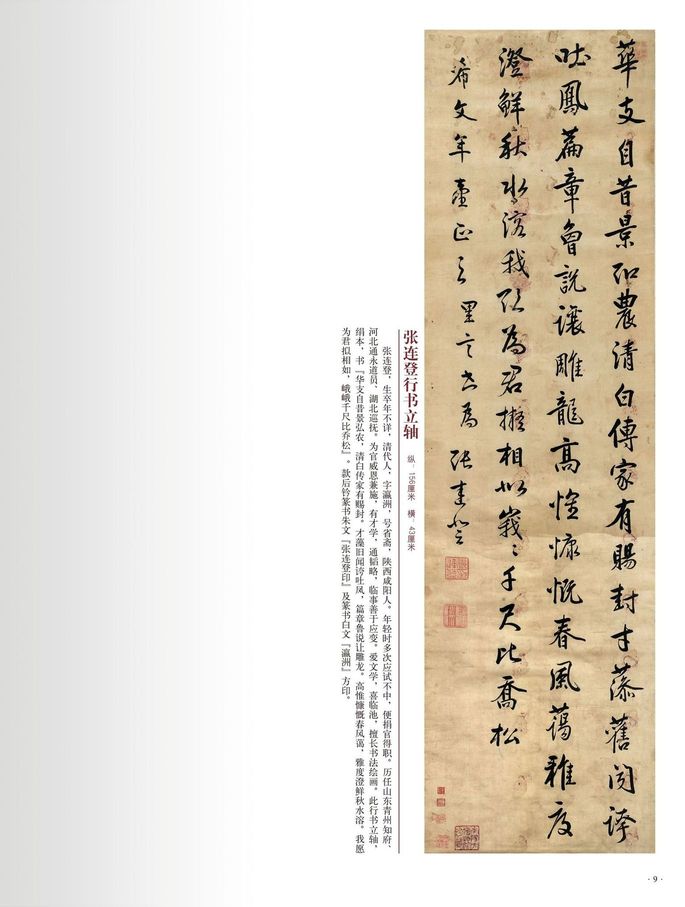 華支自昔景弘農清白傳家有賜封才藻舊闻誇
吐鳳篇章魯説讓雕龍高惟慷慨春風藹雅度
澄鮮秋水溶我為君擬相如峩〻千尺比喬松
希文年臺正之 里言 張連登
张连登行书立轴
纵：156厘米 横：43厘米
张连登，生卒年不详，清代人，字瀛洲，号省斋，陕西咸阳人。年轻时多次应试不中，便捐官得职。历任山东青州知府、
河北通永道员、湖北巡抚。为官威恩兼施，有才学，通韬略，临事善于应变。爱文学，喜临池，擅长书法绘画。此行书立轴，
绢本，书『华支自昔景弘农，清白传家有赐封。才藻旧闻誇吐凤，篇章鲁说让雕龙。高惟慷慨春风蔼，雅度澄鲜秋水溶。我愿
为君拟相如，峨峨千尺比乔松』。款后钤篆书朱文『张连登印』及篆书白文『瀛洲』方印。
· 9 ·